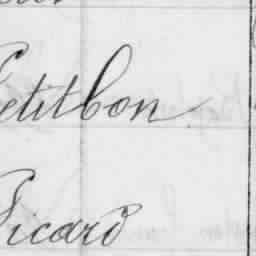 Petitbon
Picard